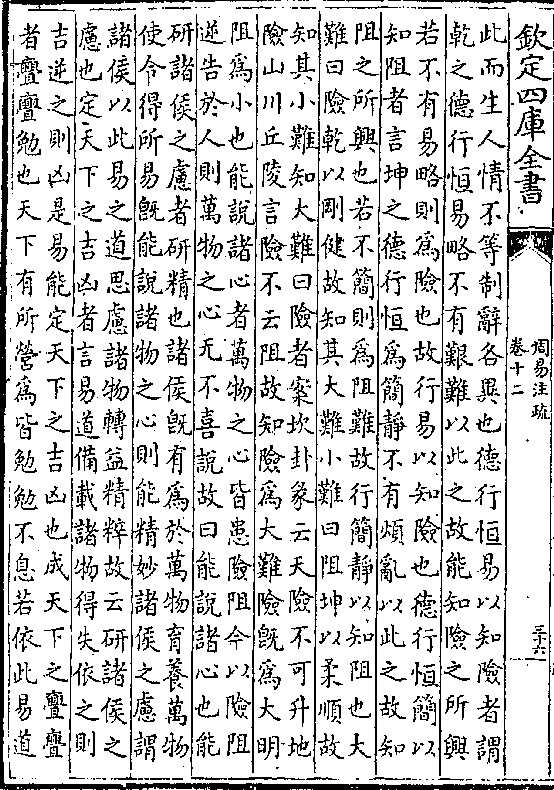 欽定四庫全書
周易注疏
卷十二
三十六
此而生人情不等制辭各異也德行恒易以知險者謂
乾之德行恒易略不有艱難以此之故能知險之所興
若不有易略則為險也故行易以知險也德行恒簡以
知阻者言坤之德行恒為簡静不有煩亂以此之故知
阻之所興也若不簡則為阻難故行簡静以知阻也大
難曰險乾以剛健故知其大難小難曰阻坤以柔順故
知其小難知大難曰險者案坎卦彖云天險不可升地
險山川丘陵言險不云阻故知險為大難險既為大明
阻為小也能說諸心者萬物之心皆患險阻今以險阻
逆告於人則萬物之心无不喜說故曰能說諸心也能
研諸侯之慮者研精也諸侯既有為於萬物育養萬物
使令得所易既能說諸物之心則能精妙諸侯之慮謂
諸侯以此易之道思慮諸物轉益精粹故云研諸侯之
慮也定天下之吉凶者言易道備載諸物得失依之則
吉逆之則凶是易能定天下之吉凶也成天下之亹亹
者亹亹勉也天下有所營為皆勉勉不息若依此易道